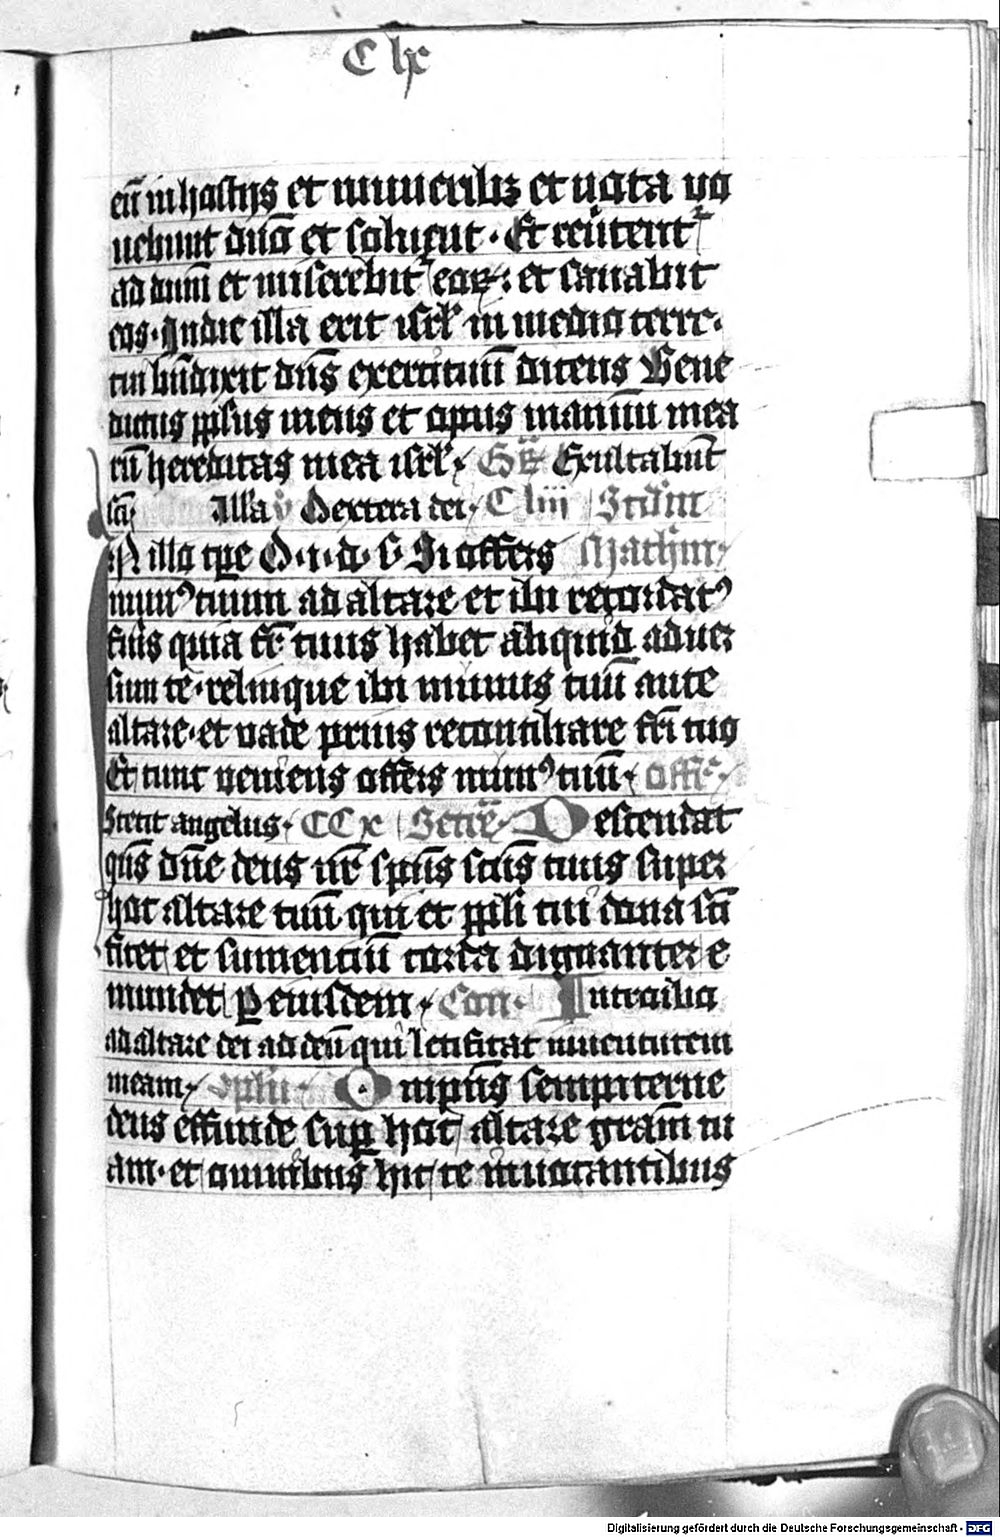 C lx
eū in hostijs et muneribꝫ et uota uo
uebunt dn̄o et soluent · Et reūtent᷑
ad dnm̄ et miserebit᷑ eoꝝ : et sanabit
eos · In die illa erit isrl̄ in medio terre ·
cui bn̄dixit dn̄s exercituū dicens Bene
dictus ppl̄us meus et opus manuū mea
rū hereditas mea isrl̄ · Gr̄ Exultabūt
sc̄i · Alla v̊ Dextera dei · C liii Scd̄m
N illo tp̄e D · i · d · s · Si offers Mathm̄
munꝰ tuum ad altare et ibi recordatꝰ
fūis quia fr̄ tuus habet aliquid aduer
sum te · relinque ibi munus tuū ante
altare · et uade prius reconciliare fr̄i tuo
Et tunc ueniens offers munꝰ tuū · Offr̄ ·
Stetit angelus · CC x Secrē · Descendat
qn̄s dn̄e deus nr̄ sp̄us sc̄us tuus super
hoc altare tuū qui et ppl̄i tui dona sc̄i
ficet et sumenciū corda dignanter e
mundet ꝑ eiusdem · Con · Introibo
ad altare dei ad deū qui letificat iuuentutem
meam · 9pl̄ii · Omp̄ns sempiterne
deus effunde suꝑ hoc altare gram̄ tu
am · et omnibus hic te inuocantibus
Digitalisierung gefördert durch die Deutsche Forschungsgemeinschaft - DFG